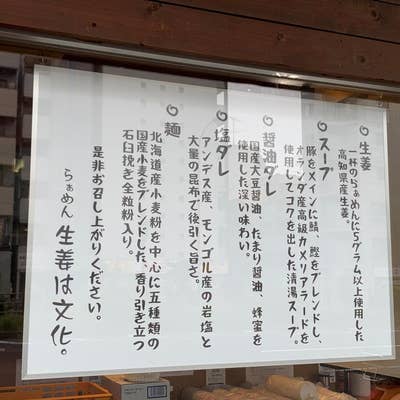 ◎生姜
一杯のらぁめんに5グラム以上使用した
高知県産生姜。
◎スープ
豚をメインに鯖、鰹をブレンドし、
オランダ産高級カメリアラードを
使用してコクを出した清湯スープ。
◎醤油ダレ
国産大豆醤油、たまり醤油、蜂蜜を
使用した深い味わい。
◎塩ダレ
アンデス産、モンゴル産の岩塩と
大量の昆布で後引く旨さ。
◎麺
北海道産小麦粉を中心に五種類の
国産小麦をブレンドした、香り引き立つ
石臼挽き全粒粉入り。
是非お召し上がりください。
らぁめん 生姜は文化。